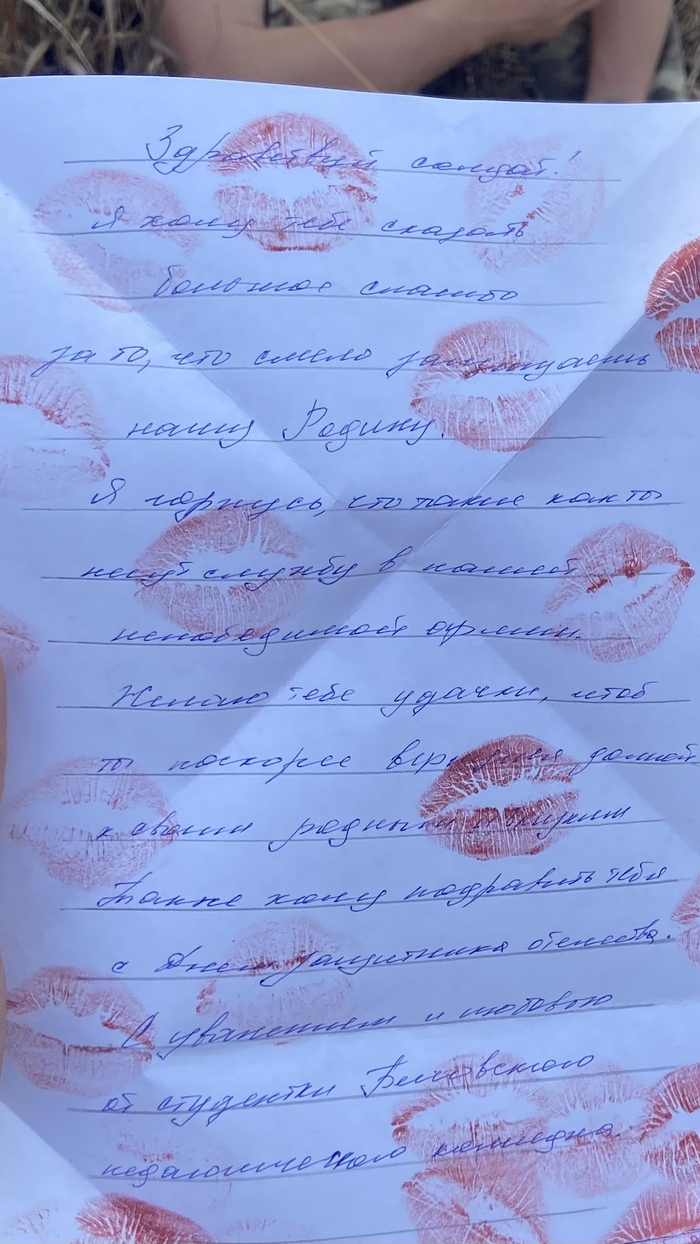 Здравствуй солдат!
Я хочу тебе сказать
большое спасибо
за то, что смело защищаешь
нашу Родину.
Я горжусь, что такие как ты
несут службу в нашей
непобедимой армии.
Желаю тебе удачи, чтоб
ты поскорее вернулся домой
к своим родным и
Также хочу поздравить тебя
с Днем защитника отечества.
С уважением и любовью
от студентки Беловского
педагогического колледжа.